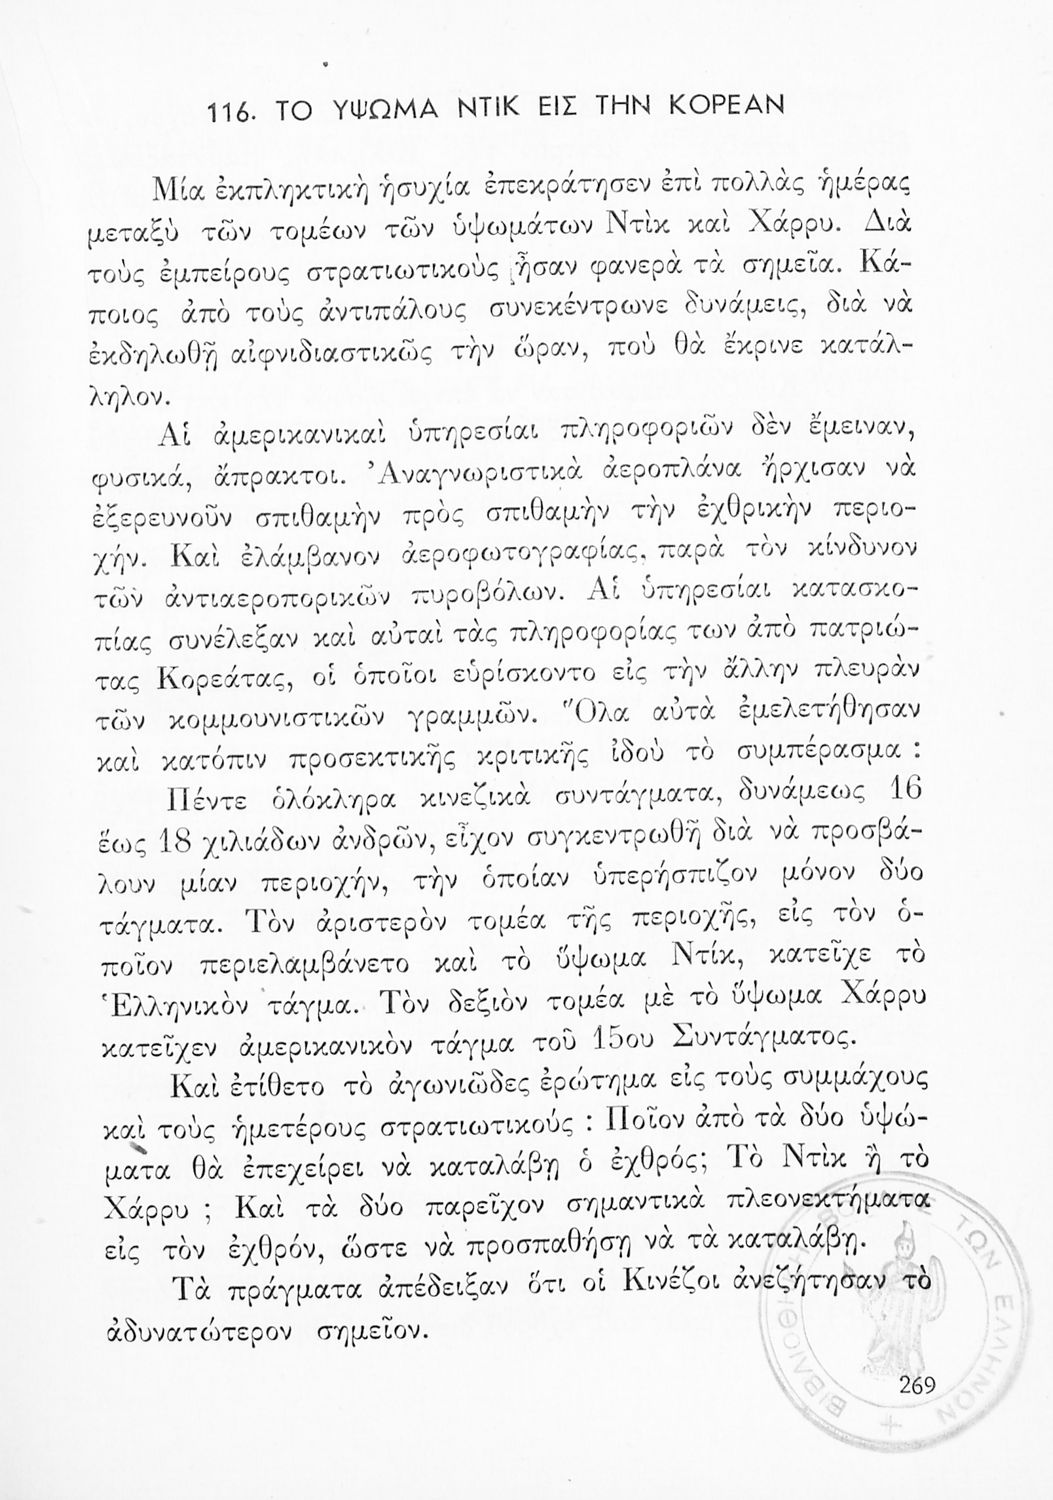 116. ΤΟ ΥΨΩΜΑ ΝΤΙΚ ΕΙΣ ΤΗΝ ΚΟΡΕΑΝ
Μία ἐκπληκτικὴ ἡσυχία ἐπεκράτησεν ἐπὶ πολλὰς ἡμέρας
μεταξὺ τῶν τομέων τῶν ὑψωμάτων Ντὶκ καὶ Χάρρυ. Διὰ
τοὺς ἐμπείρους στρατιωτικοὺς ἦσαν φανερὰ τὰ σημεῖα. Κά-
ποιος ἀπὸ τοὺς ἀντιπάλους συνεκέντρωνε δυνάμεις, διὰ νὰ
ἐκδηλωθῇ αἰφνιδιαστικῶς τὴν ὥραν, ποὺ θὰ ἔκρινε κατάλ-
ληλον.
Αἱ ἀμερικανικαὶ ὑπηρεσίαι πληροφοριῶν δὲν ἔμειναν,
φυσικά, ἄπρακτοι. Ἀναγνωριστικὰ ἀεροπλάνα ἤρχισαν νὰ
ἐξερευνοῦν σπιθαμὴν πρὸς σπιθαμὴν τὴν ἐχθρικὴν περιο-
χήν. Καὶ ἐλάμβανον ἀεροφωτογραφίας, παρὰ τὸν κίνδυνον
τῶν ἀντιαεροπορικῶν πυροβόλων. Αἱ ὑπηρεσίαι κατασκο-
πίας συνέλεξαν καὶ αὐταὶ τὰς πληροφορίας των ἀπὸ πατριώ-
τας Κορεάτας, οἱ ὁποῖοι εὑρίσκοντο εἰς τὴν ἄλλην πλευρὰν
τῶν κομμουνιστικῶν γραμμῶν. Ὅλα αὐτὰ ἐμελετήθησαν
καὶ κατόπιν προσεκτικῆς κριτικῆς ἰδοὺ τὸ συμπέρασμα :
Πέντε ὁλόκληρα κινεζικὰ συντάγματα, δυνάμεως 16
ἕως 18 χιλιάδων ἀνδρῶν, εἶχον συγκεντρωθῆ διὰ νὰ προσβά-
λουν μίαν περιοχήν, τὴν ὁποίαν ὑπερήσπιζον μόνον δύο
τάγματα. Τὸν ἀριστερὸν τομέα τῆς περιοχῆς, εἰς τὸν ὁ-
ποῖον περιελαμβάνετο καὶ τὸ ὕψωμα Ντίκ, κατεῖχε τὸ
Ἑλληνικὸν τάγμα. Τὸν δεξιὸν τομέα μὲ τὸ ὕψωμα Χάρρυ
κατεῖχεν ἀμερικανικὸν τάγμα τοῦ 15ου Συντάγματος.
Καὶ ἐτίθετο τὸ ἀγωνιῶδες ἐρώτημα εἰς τοὺς συμμάχους
καὶ τοὺς ἡμετέρους στρατιωτικούς : Ποῖον ἀπὸ τὰ δύο ὑψώ-
ματα θὰ ἐπεχείρει νὰ καταλάβῃ ὁ ἐχθρός; Τὸ Ντὶκ ἢ τὸ
Χάρρυ ; Καὶ τὰ δύο παρεῖχον σημαντικὰ πλεονεκτήματα
εἰς τὸν ἐχθρόν, ὥστε νὰ προσπαθήσῃ νὰ τὰ καταλάβῃ.
Τὰ πράγματα ἀπέδειξαν ὅτι οἱ Κινέζοι ἀνεζήτησαν τὸ
ἀδυνατώτερον σημεῖον.
269
ΒΙΒΛΙΟΘΗΚΗ ΒΟΥΛΗΣ ΤΩΝ ΕΛΛΗΝΩΝ